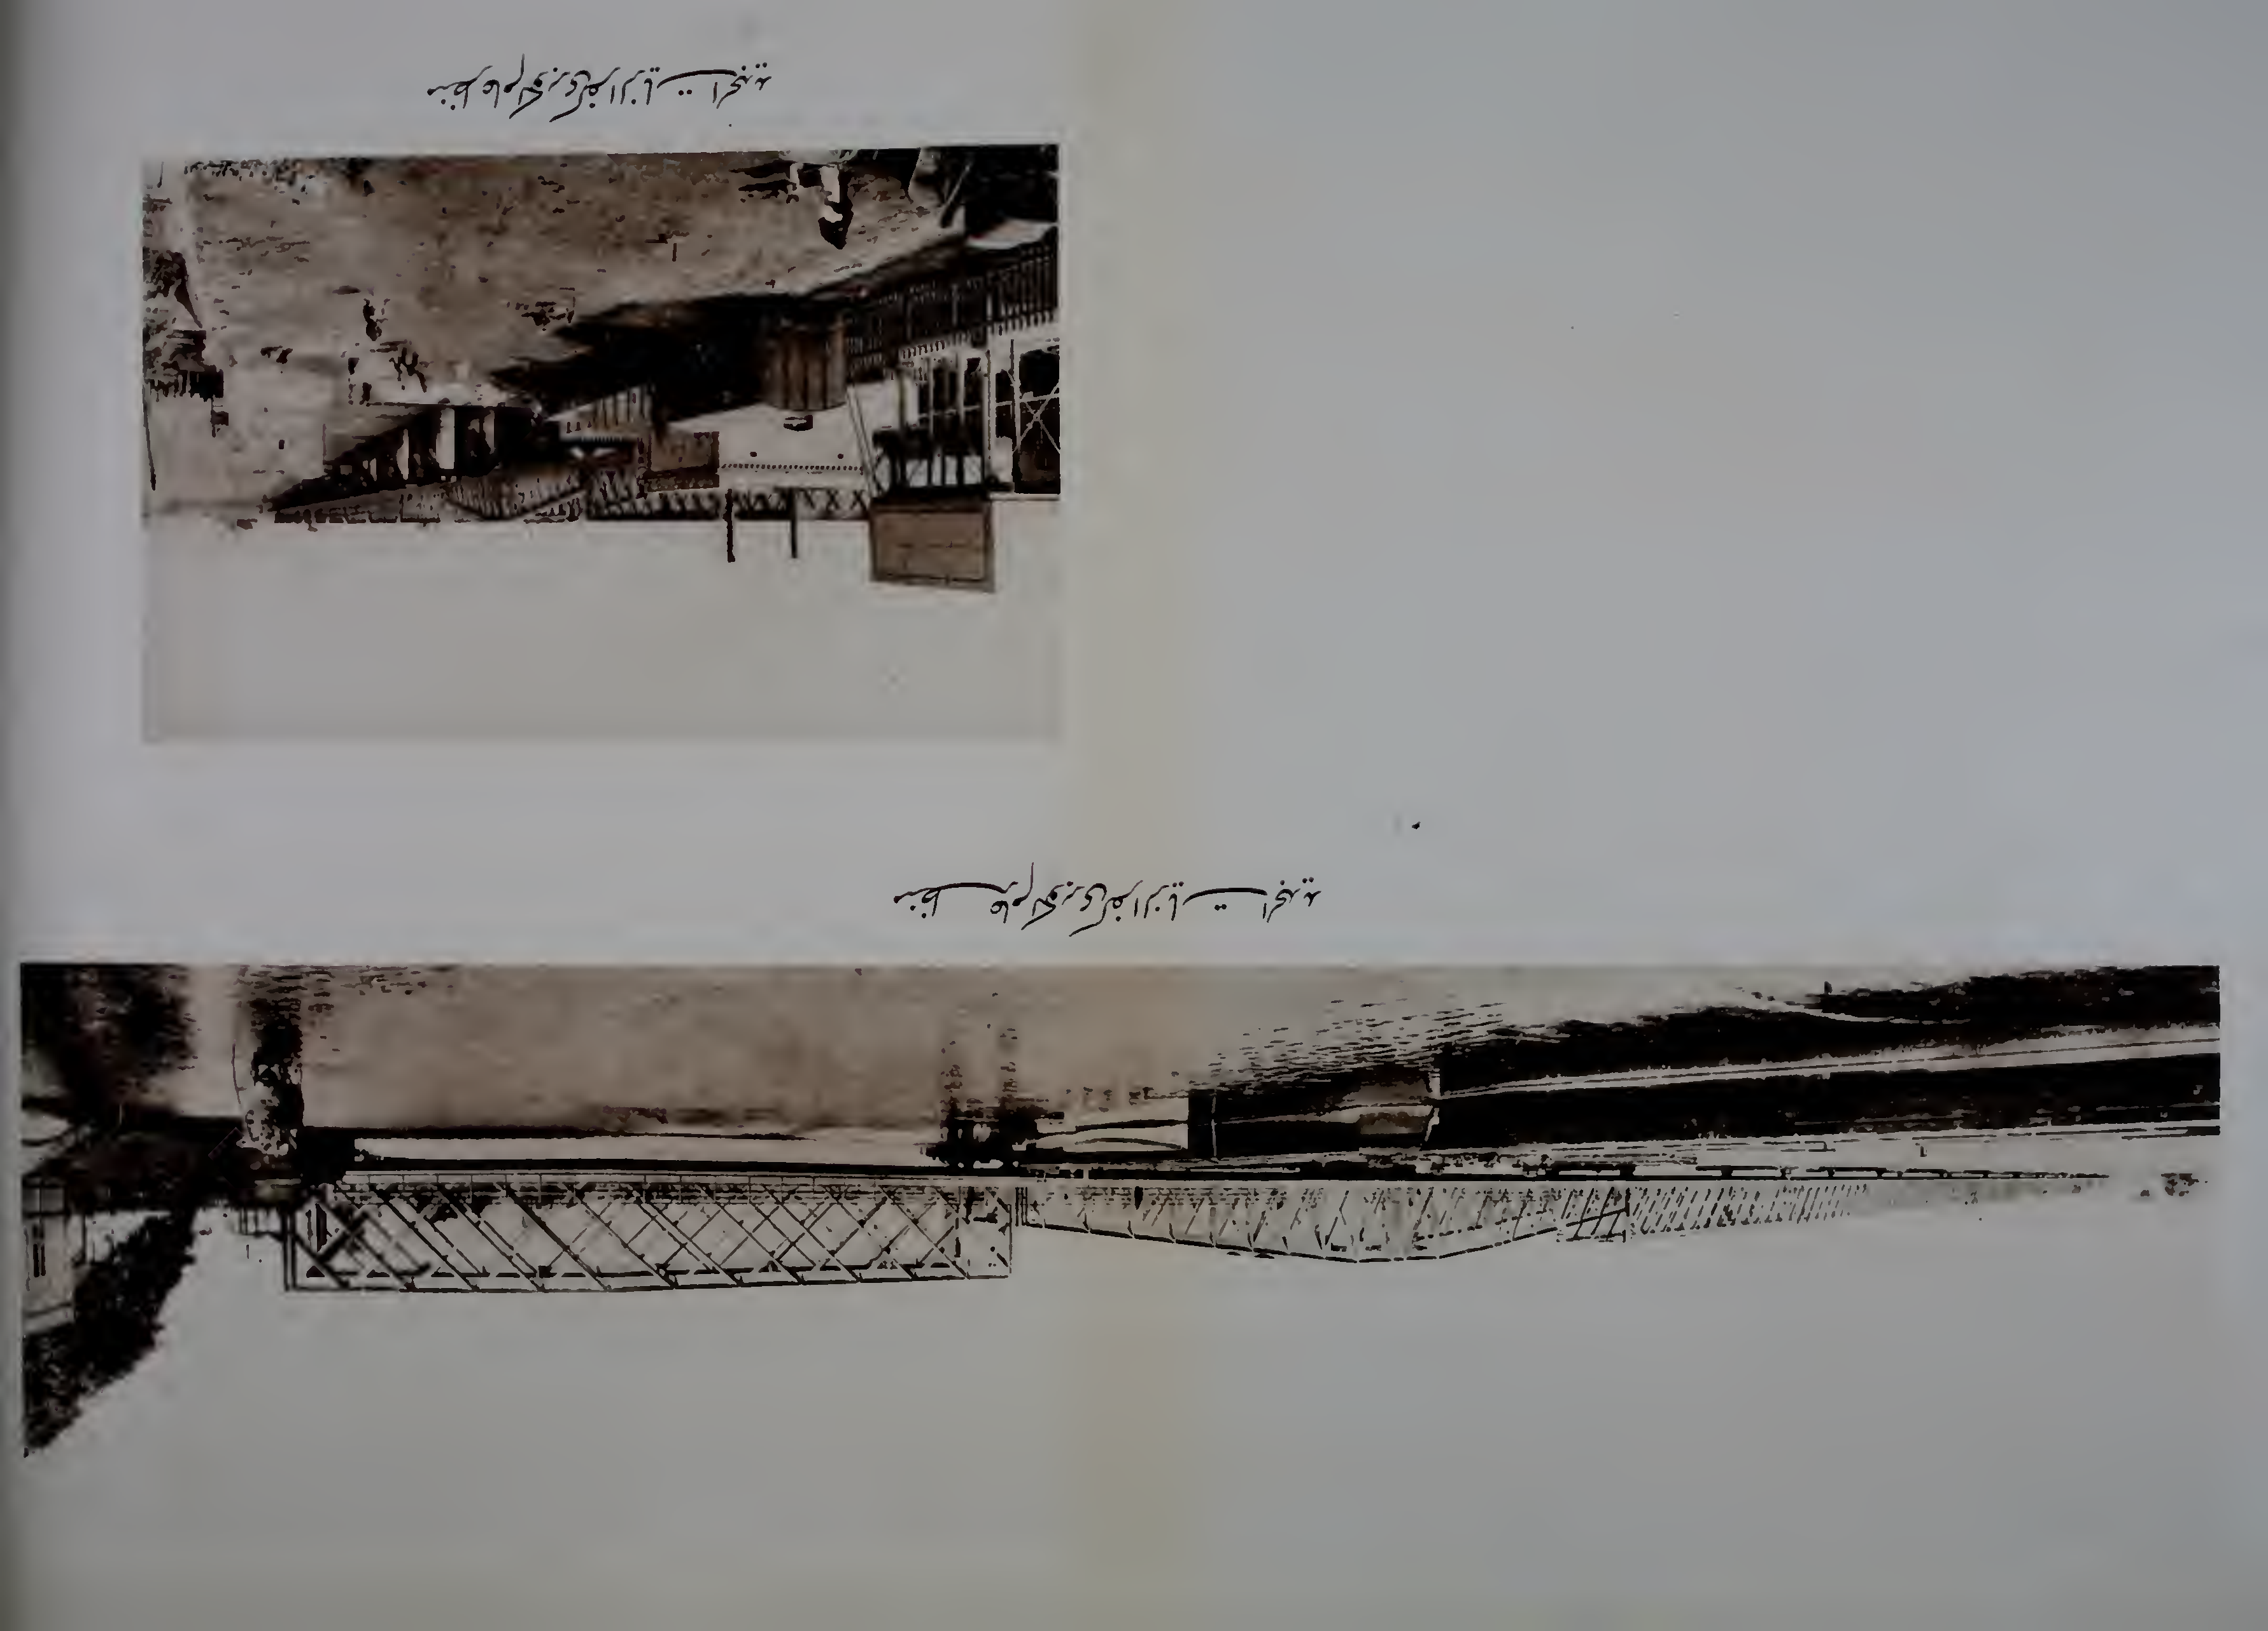 منظر عام لكوبري كفر الزيات الجديد
منظر عام لكوبري كفر الزيات الجديد